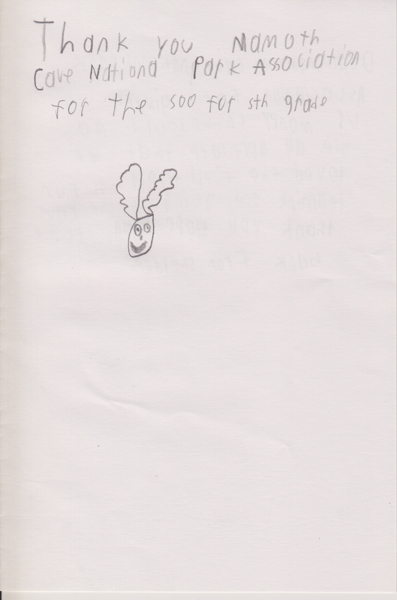 Thank you Mamoth
Cave Nationa Park Association
for the 500 for 5th grade